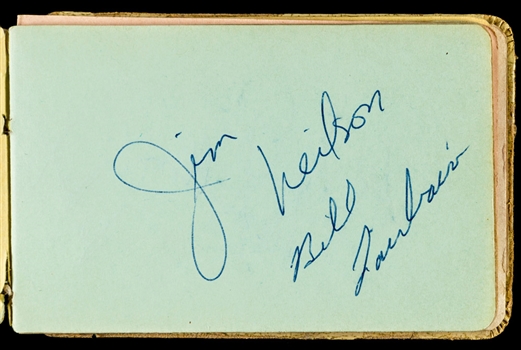 Jim Neilson
Bill Fairbairn